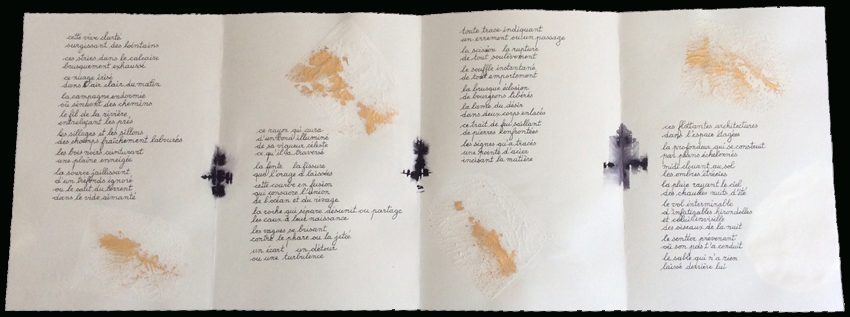 cette vive clarté
surgissant des lointains
ces stries dans le calcaire
brusquement exhaussé
ce nuage irisé
dans l'air clair du matin
la campagne endormie
où sindent des chemins
le fil de la rivière
entrelaçant les prés
les sillages et les sillons
des champs fraîchement labourés
les bras noirs ceinturant
une plaine enneigée
la source jaillissant
d'un tréfonds ignoré
ou le saut du torrent
dans le vide aimanté
ce rayon qui aura
d'un coup illuminé
de sa vigueur céleste
ce qu'il a traversé
la fente la fissure
que l'orage a laissées
cette coulée en fusion
qui consacre l'union
de l'océan et du rivage
la roche qui sépare désunit ou partage
les eaux à leur naissance
les vagues se brisant
contre le phare ou la jetée
un écart un détour
ou une turbulence
toute trace indiquant
un errement ou un passage
la scission la rupture
de tout soulèvement
le souffle instantané
de tout emportement
la brusque éclosion
de bourgeons libérés
la fente du désir
dans deux corps enlacés
ce trait de feu saillant
de pierres confrontées
les signes qu'a tracés
une pointe d'acier
incisant la matière
ces flottantes architectures
dans l'espace étagées
la profondeur qui se construit
par plans échelonnés
midi clouant au sol
les ombres étrécies
la pluie rayant le ciel
des chaudes nuits d'été
le vol interminable
d'infatigables hirondelles
et celui invisible
des oiseaux de la nuit
le sentier provenant
où son pas t'a conduit
le sable qui n'a rien
laissé derrière lui